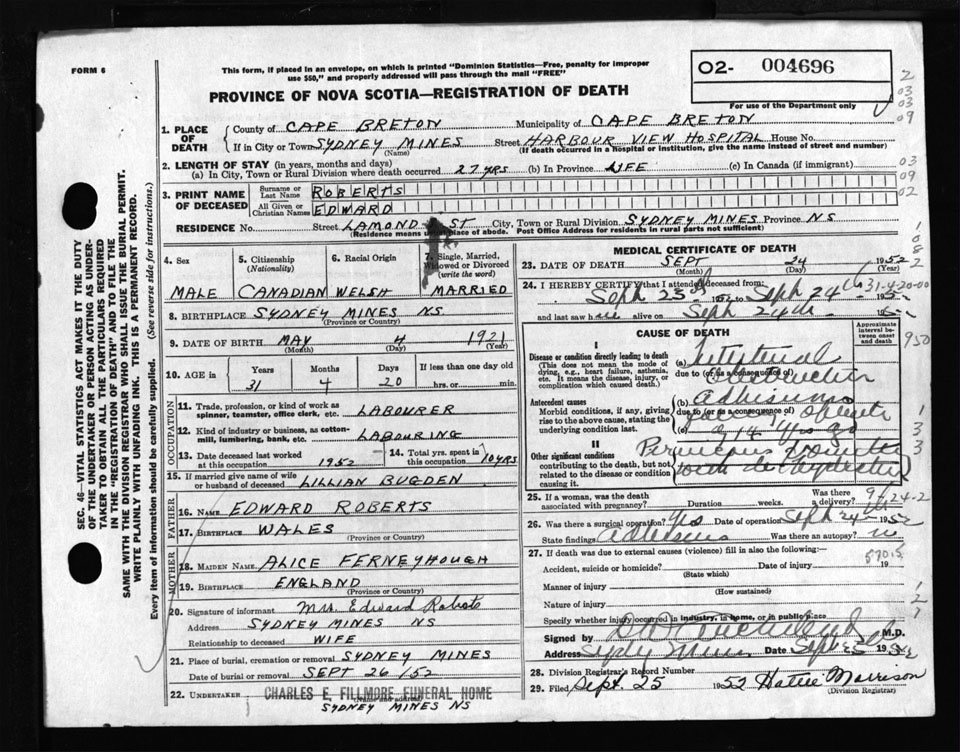 FORM 6
This form, if placed in an envelope, on which is printed "Dominion Statistics—Free, penalty for improper
use $50," and properly addressed will pass through the mail "FREE"
PROVINCE OF NOVA SCOTIA—REGISTRATION OF DEATH
02- 004696
For use of the Department only
2
03
03
09
1. PLACE OF DEATH
County of CAPE BRETON Municipality of CAPE BRETON
If in City or Town SYDNEY MINES Street HARBOUR VIEW HOSPITAL House No.
(Name) (If death occurred in a hospital or institution, give the name instead of street and number)
2. LENGTH OF STAY (in years, months and days)
(a) In City, Town or Rural Division where death occurred 27 YRS (b) In Province LIFE (c) In Canada (if immigrant)
03
09
02
3. PRINT NAME OF DECEASED
Surname or Last Name ROBERTS
All Given or Christian Names EDWARD
RESIDENCE No. Street LAMOND ST City, Town or Rural Division SYDNEY MINES Province NS
(Residence means place of abode. Post Office Address for residents in rural parts not sufficient)
4. Sex
MALE
5. Citizenship
(Nationality)
CANADIAN
6. Racial Origin
WELSH
7. Single, Married,
Widowed or Divorced
(write the word)
MARRIED
8. BIRTHPLACE SYDNEY MINES NS
(Province or Country)
9. DATE OF BIRTH MAY 4 1921
(Month) (Day) (Year)
10. AGE in
Years Months Days If less than one day old
31 4 20 hrs. or min.
OCCUPATION
11. Trade, profession, or kind of work as
spinner, teamster, office clerk, etc. LABOURER
12. Kind of industry or business, as cotton-
mill, lumbering, bank, etc. LABOURING
13. Date deceased last worked
at this occupation 1952
14. Total yrs. spent in
this occupation 10 YRS
15. If married give name of wife
or husband of deceased LILLIAN BUGDEN
FATHER
16. Name EDWARD ROBERTS
17. BIRTHPLACE WALES
(Province or Country)
MOTHER
18. MAIDEN NAME ALICE FERNEYHOUGH
19. BIRTHPLACE ENGLAND
(Province or Country)
20. Signature of informant Mrs. Edward Roberts
Address SYDNEY MINES NS
Relationship to deceased WIFE
21. Place of burial, cremation or removal SYDNEY MINES
Date of burial or removal SEPT 26/52
22. UNDERTAKER CHARLES E. FILLMORE FUNERAL HOME
(Name and address)
SYDNEY MINES NS
MEDICAL CERTIFICATE OF DEATH
23. DATE OF DEATH SEPT 24 1952
(Month) (Day) (Year)
24. I HEREBY CERTIFY that I attended deceased from:
Sept 23 1952 to Sept 24th 1952
31-4-20-00
and last saw h alive on Sept 24th 195
CAUSE OF DEATH
Approximate interval between onset and death
950
I
Disease or condition directly leading to death
(This does not mean the mode of
dying, e.g., heart failure, asthenia,
etc. It means the disease, injury, or
complication which caused death.)
(a) Intestinal
due to (or as a consequence of)
Obstruction
Antecedent causes
Morbid conditions, if any, giving
rise to the above cause, stating the
underlying condition last.
(b) adhesions
due to (or as a consequence of)
(c)
14 yrs ago
II
Other significant conditions
contributing to the death, but not
related to the disease or condition
causing it.
Pernicious vomiting
with dehydration
1
3
3
25. If a woman, was the death
associated with pregnancy? Duration weeks. Was there a delivery?
26. Was there a surgical operation? Yes Date of operation Sept 24 1952
State findings adhesions Was there an autopsy? no
27. If death was due to external causes (violence) fill in also the following:
57015
Accident, suicide or homicide? Date of injury 19
(State which)
Manner of injury
(How sustained)
Nature of injury
Specify whether injury occurred in industry, in home, or in public place
Signed by M.D.
Address Sydney Mines Date Sept 25 19
28. Division Registrar's Record Number
29. Filed Sept. 25 1952 Hattie Morrison
(Division Registrar)
SEC. 46—VITAL STATISTICS ACT MAKES IT THE DUTY
OF THE UNDERTAKER OR PERSON ACTING AS UNDER-
TAKER TO OBTAIN ALL THE PARTICULARS REQUIRED
IN THE "REGISTRATION OF DEATH" AND TO FILE THE
SAME WITH THE DIVISION REGISTRAR WHO SHALL ISSUE THE BURIAL PERMIT.
WRITE PLAINLY WITH UNFADING INK. THIS IS A PERMANENT RECORD.
Every item of information should be carefully supplied. (See reverse side for instructions.)